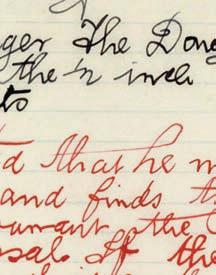 ger The Dong
the ½ inch
ts
d that he m
and finds th
warrant the
sal. If the